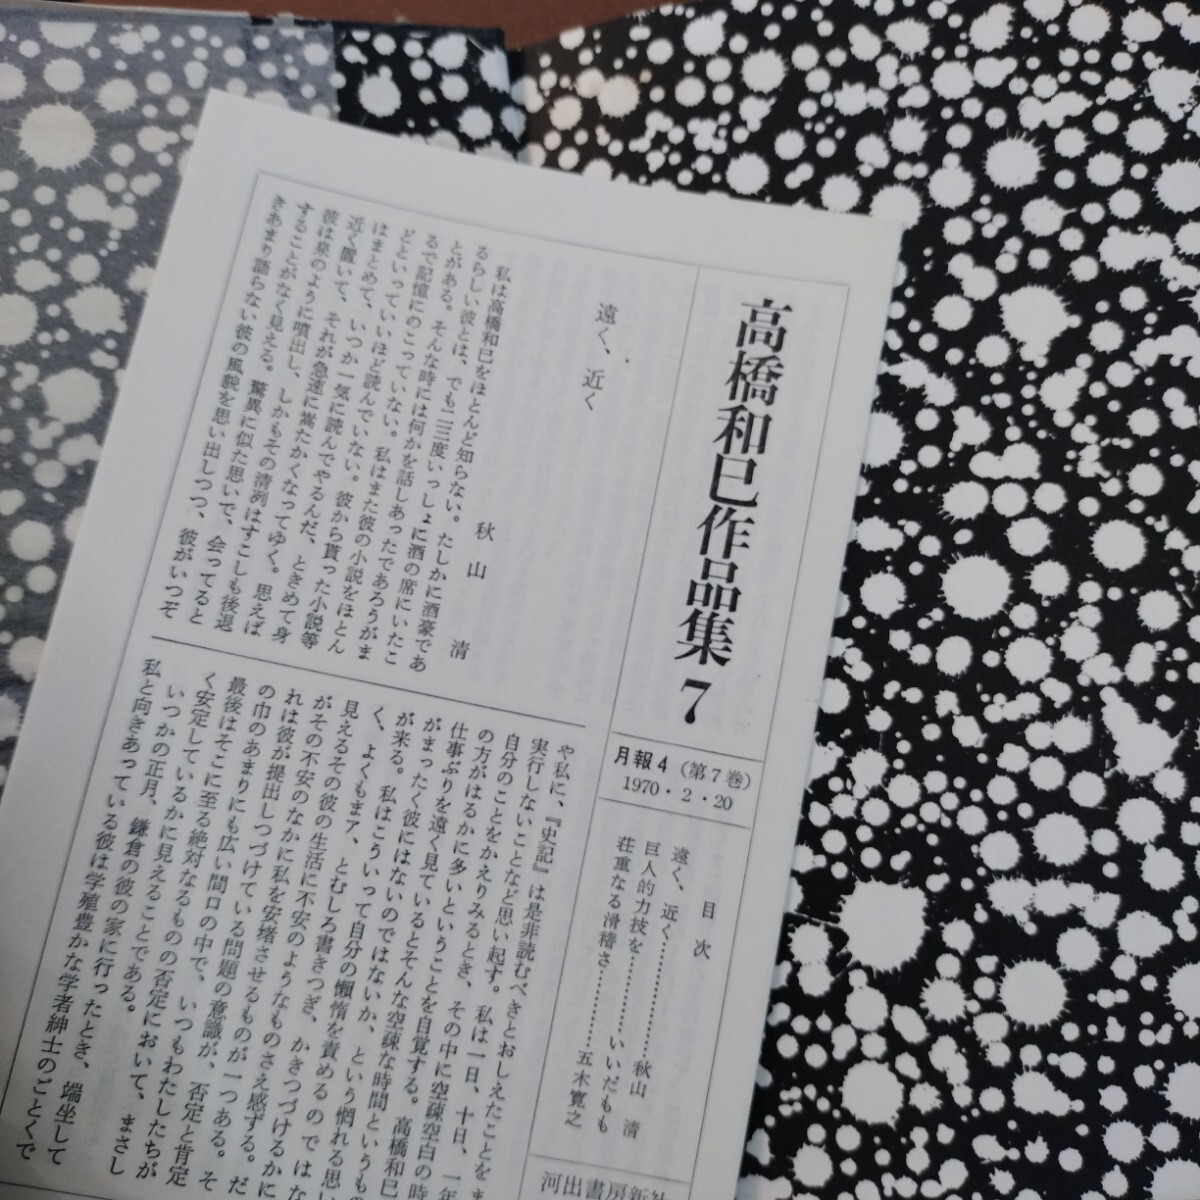 高橋和巳作品集 7
月報4（第7巻）
1970・2・20
目次
遠く、近く…………秋山 清
巨人的力技を…………いいだもも
荘重なる滑稽さ…………五木寛之
河出書房新社
遠く、近く
秋山 清
私は高橋和巳をほとんど知らない。たしかに酒豪であ
るらしい彼とは、でも二三度いっしょに酒の席にいたこ
とがある。そんな時には何かを話しあったであろうがま
るで記憶にのこっていない。私はまた彼の小説をほとん
どといっていいほど読んでいない。彼から貰った小説等
はまとめて、いつか一気に読んでやるんだ、ときめて身
近く置いて、それが急速に嵩たかくなってゆく。思えば
彼は泉のように噴出し、しかもその清冽はすこしも後退
することがなく見える。驚異に似た思いで、会ってると
きあまり語らない彼の風貌を思い出しつつ、彼がいつぞ
や私に、『史記』は是非読むべきとおしえたことをま
実行しないことなど思い起す。私は一日、十日、一年
自分のことをかえりみるとき、その中に空疎空白の時
の方がはるかに多いということを自覚する。高橋和巳
仕事ぶりを遠く見ているとそんな空疎な時間というもの
がまったく彼にはないのではないか、という惘れる思い
が来る。私はこういって自分の懶惰を責めるのではな
く、よくもまア、とむしろ書きつぎ、かきつづけるかに
見えるその彼の生活に不安のようなものさえ感ずる。だ
がその不安のなかに私を安堵させるものが一つある。そ
れは彼が提出しつづけている問題の意識が、否定と肯定
の巾のあまりにも広い間口の中で、いつもわたしたちが
最後はそこに至る絶対なるものの否定において、まさし
く安定しているかに見えることである。
いつかの正月、鎌倉の彼の家に行ったとき、端坐して
私と向きあっている彼は学殖豊かな学者紳士のごとくで